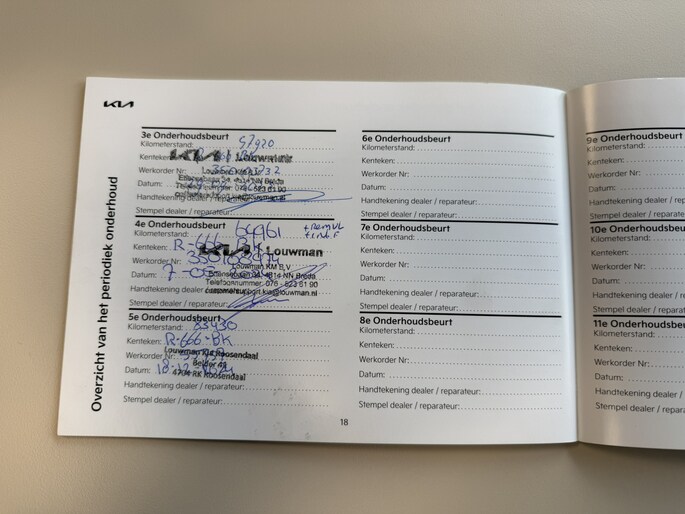 KIA
Overzicht van het periodiek onderhoud
3e Onderhoudsbeurt
Kilometerstand: 47920
Kenteken:
KIA Louwman
Werkorder Nr:
Datum:
Telefoonnummer: 076 - 623 61 90
Handtekening dealer / reparateur:
Stempel dealer / reparateur:
4e Onderhoudsbeurt
+ remvl
Kilometerstand:
Kenteken: R-666-BK
KIA Louwman
Werkorder Nr:
Louwman KM B.V.
Datum:
4814 NN Breda
Telefoonnummer: 076 - 623 61 90
Handtekening dealer / reparateur:
customersupport.kia@louwman.nl
Stempel dealer / reparateur:
5e Onderhoudsbeurt
Kilometerstand: 83430
Kenteken: R-666-BK
Louwman Kia Roosendaal
Werkorder Nr:
Datum:
4704 RK Roosendaal
Handtekening dealer / reparateur:
Stempel dealer / reparateur:
6e Onderhoudsbeurt
Kilometerstand:
Kenteken:
Werkorder Nr:
Datum:
Handtekening dealer / reparateur:
Stempel dealer / reparateur:
7e Onderhoudsbeurt
Kilometerstand:
Kenteken:
Werkorder Nr:
Datum:
Handtekening dealer / reparateur:
Stempel dealer / reparateur:
8e Onderhoudsbeurt
Kilometerstand:
Kenteken:
Werkorder Nr:
Datum:
Handtekening dealer / reparateur:
Stempel dealer / reparateur:
18
9e Onderhoudsbeurt
Kilometerstand:
Kenteken:
Werkorder Nr:
Datum:
Handtekening dealer
Stempel dealer / repa
10e Onderhoudsbeu
Kilometerstand:
Kenteken:
Werkorder Nr:
Datum:
Handtekening dealer
Stempel dealer / rep
11e Onderhoudsbeu
Kilometerstand:
Kenteken:
Werkorder Nr:
Datum:
Handtekening deale
Stempel dealer / rep